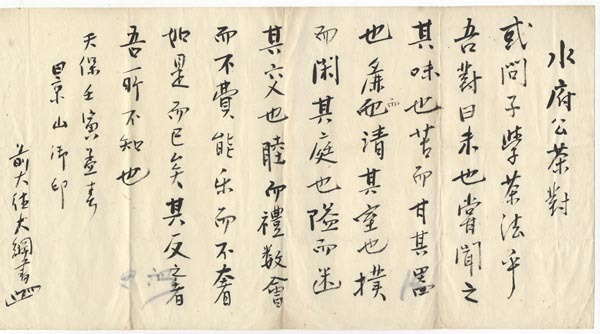 水府公茶對
或問子學茶法乎
吾對曰未也嘗聞之
其味也苦而甘其器
也麁而清其室也撲
而閑其庭也隘而幽
其交也睦而禮數會
而不費能乐而不奢
如是而已矣其反之者
吾所不知也
天保壬寅孟春
景山御印
前大徳大綱書